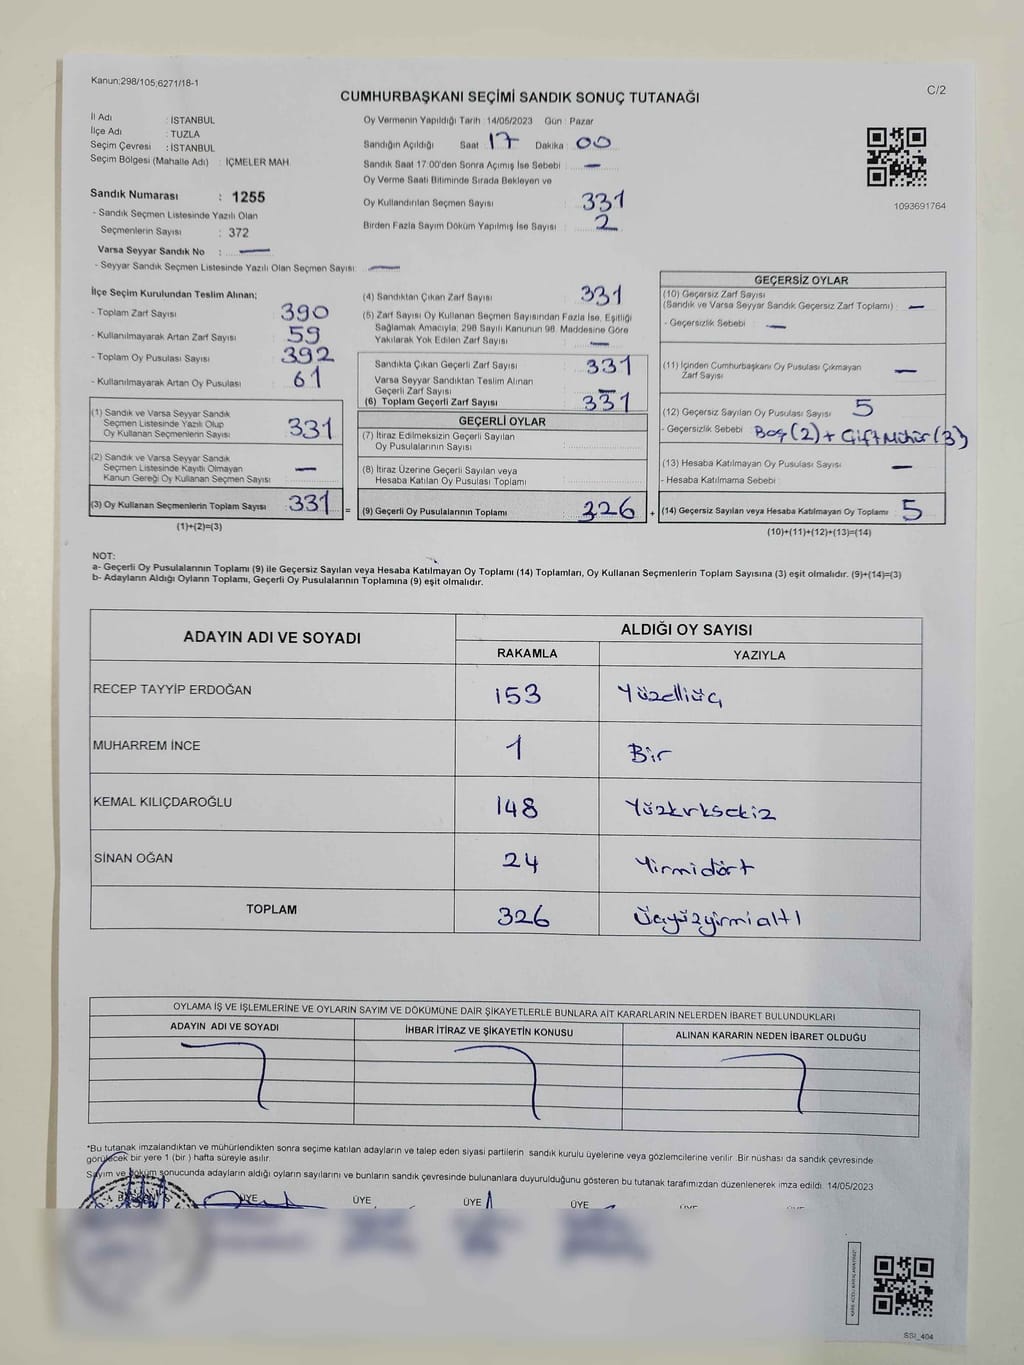 Kanun:298/105,6271/18-1
C/2
CUMHURBAŞKANI SEÇİMİ SANDIK SONUÇ TUTANAĞI
İl Adı : İSTANBUL
İlçe Adı : TUZLA
Seçim Çevresi : İSTANBUL
Seçim Bölgesi (Mahalle Adı) : İÇMELER MAH.
Sandık Numarası : 1255
- Sandık Seçmen Listesinde Yazılı Olan
Seçmenlerin Sayısı : 372
Varsa Seyyar Sandık No : —
- Seyyar Sandık Seçmen Listesinde Yazılı Olan Seçmen Sayısı: —
Oy Vermenin Yapıldığı Tarih : 14/05/2023 Gün : Pazar
Sandığın Açıldığı Saat 17 Dakika 00
Sandık Saat 17:00'den Sonra Açımış İse Sebebi : —
Oy Verme Saati Bitiminde Sırada Bekleyen ve
Oy Kullandırılan Seçmen Sayısı : 331
Birden Fazla Sayım Döküm Yapılmış İse Sayısı : 2
1093691764
İlçe Seçim Kurulundan Teslim Alınan;
- Toplam Zarf Sayısı : 390
- Kullanılmayarak Artan Zarf Sayısı : 59
- Toplam Oy Pusulası Sayısı : 392
- Kullanılmayarak Artan Oy Pusulası : 61
(1) Sandık ve Varsa Seyyar Sandık
Seçmen Listesinde Yazılı Olup
Oy Kullanan Seçmenlerin Sayısı : 331
(2) Sandık ve Varsa Seyyar Sandık
Seçmen Listesinde Kayıtlı Olmayan
Kanun Gereği Oy Kullanan Seçmen Sayısı : —
(3) Oy Kullanan Seçmenlerin Toplam Sayısı : 331
(1)+(2)=(3)
=
(4) Sandıktan Çıkan Zarf Sayısı : 331
(5) Zarf Sayısı Oy Kullanan Seçmen Sayısından Fazla İse, Eşitliği
Sağlamak Amacıyla; 298 Sayılı Kanunun 98. Maddesine Göre
Yakılarak Yok Edilen Zarf Sayısı : —
Sandıkta Çıkan Geçerli Zarf Sayısı : 331
Varsa Seyyar Sandıktan Teslim Alınan
Geçerli Zarf Sayısı : —
(6) Toplam Geçerli Zarf Sayısı : 331
GEÇERLİ OYLAR
(7) İtiraz Edilmeksizin Geçerli Sayılan
Oy Pusulalarının Sayısı
(8) İtiraz Üzerine Geçerli Sayılan veya
Hesaba Katılan Oy Pusulası Toplamı
(9) Geçerli Oy Pusulalarının Toplamı : 326
+
GEÇERSİZ OYLAR
(10) Geçersiz Zarf Sayısı
(Sandık ve Varsa Seyyar Sandık Geçersiz Zarf Toplamı) : —
- Geçersizlik Sebebi : —
(11) İçinden Cumhurbaşkanı Oy Pusulası Çıkmayan
Zarf Sayısı : —
(12) Geçersiz Sayılan Oy Pusulası Sayısı : 5
- Geçersizlik Sebebi : Boş(2)+ ÇiftMühür(3)
(13) Hesaba Katılmayan Oy Pusulası Sayısı : —
- Hesaba Katılmama Sebebi :
(14) Geçersiz Sayılan veya Hesaba Katılmayan Oy Toplamı : 5
(10)+(11)+(12)+(13)=(14)
NOT:
a- Geçerli Oy Pusulalarının Toplamı (9) ile Geçersiz Sayılan veya Hesaba Katılmayan Oy Toplamı (14) Toplamları, Oy Kullanan Seçmenlerin Toplam Sayısına (3) eşit olmalıdır. (9)+(14)=(3)
b- Adayların Aldığı Oyların Toplamı, Geçerli Oy Pusulalarının Toplamına (9) eşit olmalıdır.
ADAYIN ADI VE SOYADI
ALDIĞI OY SAYISI
RAKAMLA YAZIYLA
RECEP TAYYİP ERDOĞAN 153 Yüzelliüç
MUHARREM İNCE 1 Bir
KEMAL KILIÇDAROĞLU 148 Yüzkırksekiz
SİNAN OĞAN 24 Yirmidört
TOPLAM 326 Üçyüzyirmialtı
OYLAMA İŞ VE İŞLEMLERİNE VE OYLARIN SAYIM VE DÖKÜMÜNE DAİR ŞİKAYETLERLE BUNLARA AİT KARARLARIN NELERDEN İBARET BULUNDUKLARI
ADAYIN ADI VE SOYADI İHBAR İTİRAZ VE ŞİKAYETİN KONUSU ALINAN KARARIN NEDEN İBARET OLDUĞU
*Bu tutanak imzalandıktan ve mühürlendikten sonra seçime katılan adayların ve talep eden siyasi partilerin sandık kurulu üyelerine veya gözlemcilerine verilir. Bir nüshası da sandık çevresinde
görülecek bir yere 1 (bir ) hafta süreyle asılır.
Sayım ve döküm sonucunda adayların aldığı oyların sayılarını ve bunların sandık çevresinde bulunanlara duyurulduğunu gösteren bu tutanak tarafımızdan düzenlenerek imza edildi. 14/05/2023
BAŞKAN ÜYE ÜYE ÜYE ÜYE
SSI_404